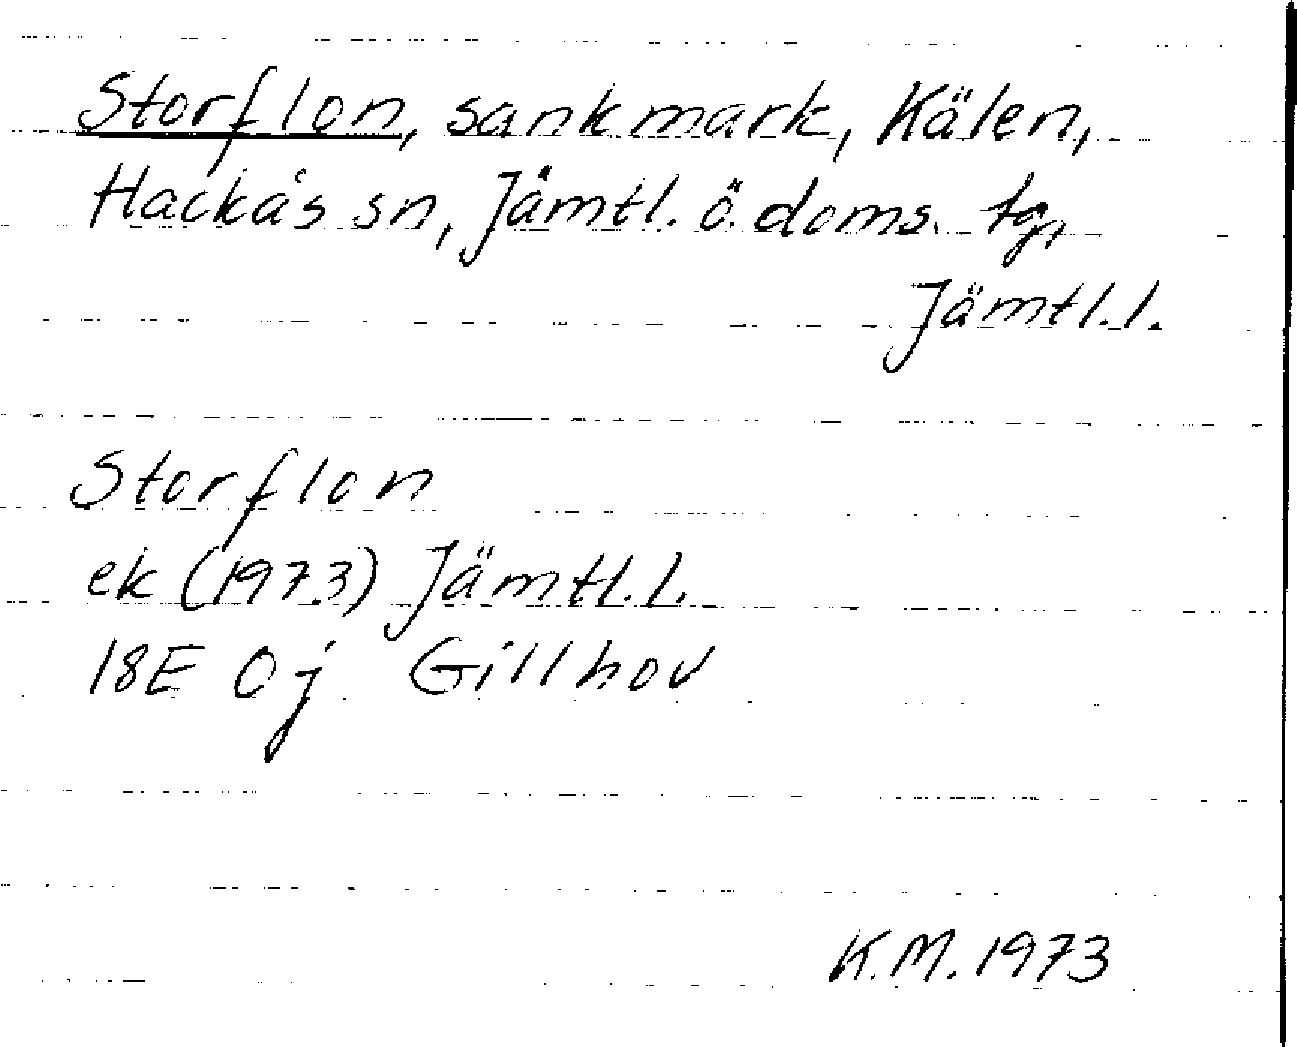 Storflon, sankmark, Kälen,
Hackås sn, Jämtl. ö. doms. tg,
Jämtl.l.
Storflon
ek (1973) Jämtl.l.
18E 0j Gillhov
K.M. 1973